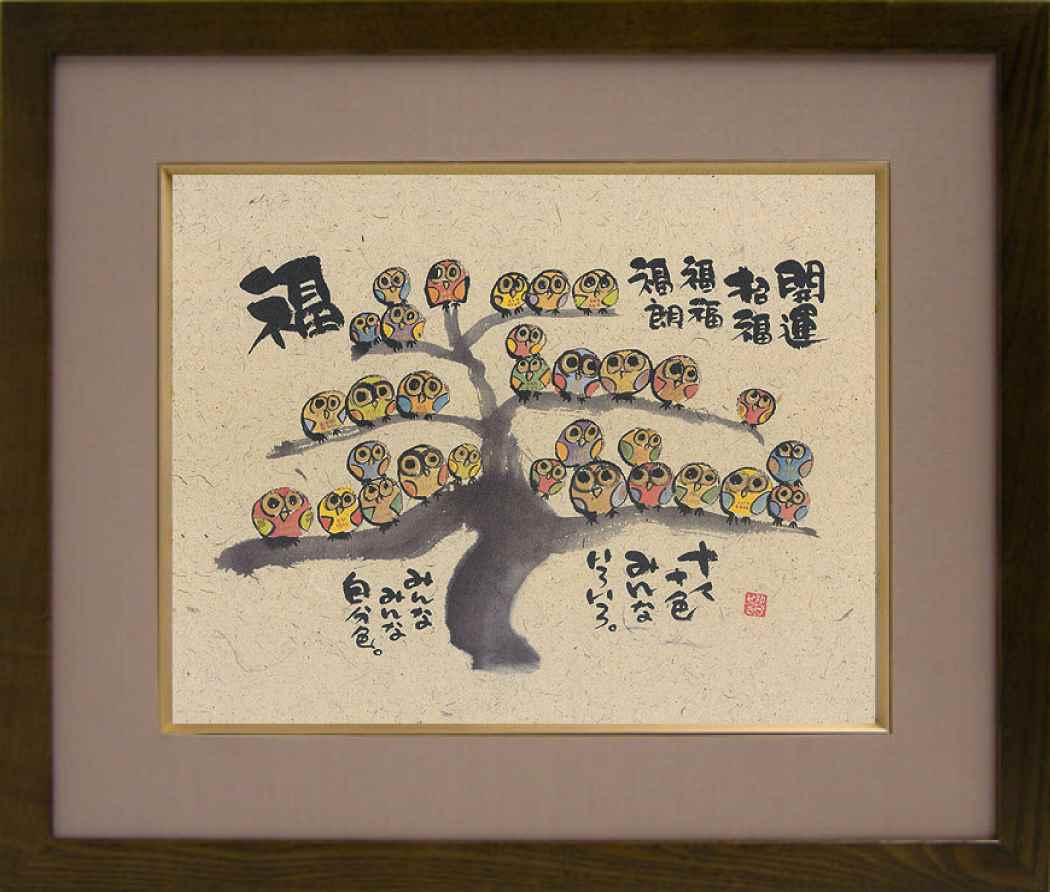 開運
招福
福福
福朗
福
十人
十色
みんな
いろいろ。
みんな
みんな
自分色。